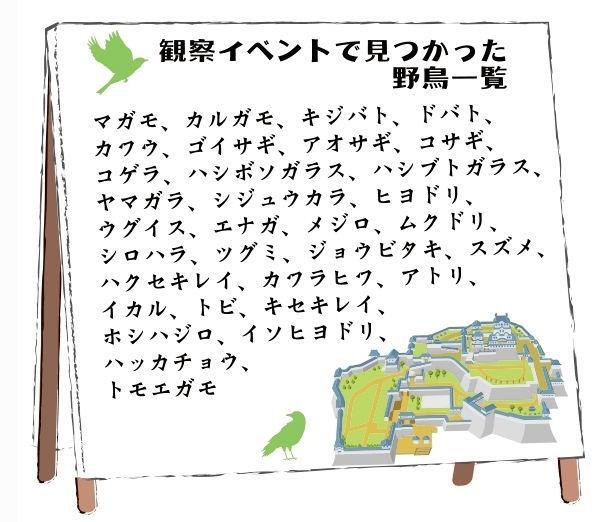 観察イベントで見つかった
野鳥一覧
マガモ、カルガモ、キジバト、ドバト、
カワウ、ゴイサギ、アオサギ、コサギ、
コゲラ、ハシボソガラス、ハシブトガラス、
ヤマガラ、シジュウカラ、ヒヨドリ、
ウグイス、エナガ、メジロ、ムクドリ、
シロハラ、ツグミ、ジョウビタキ、スズメ、
ハクセキレイ、カワラヒワ、アトリ、
イカル、トビ、キセキレイ、
ホシハジロ、イソヒヨドリ、
ハッカチョウ、
トモエガモ